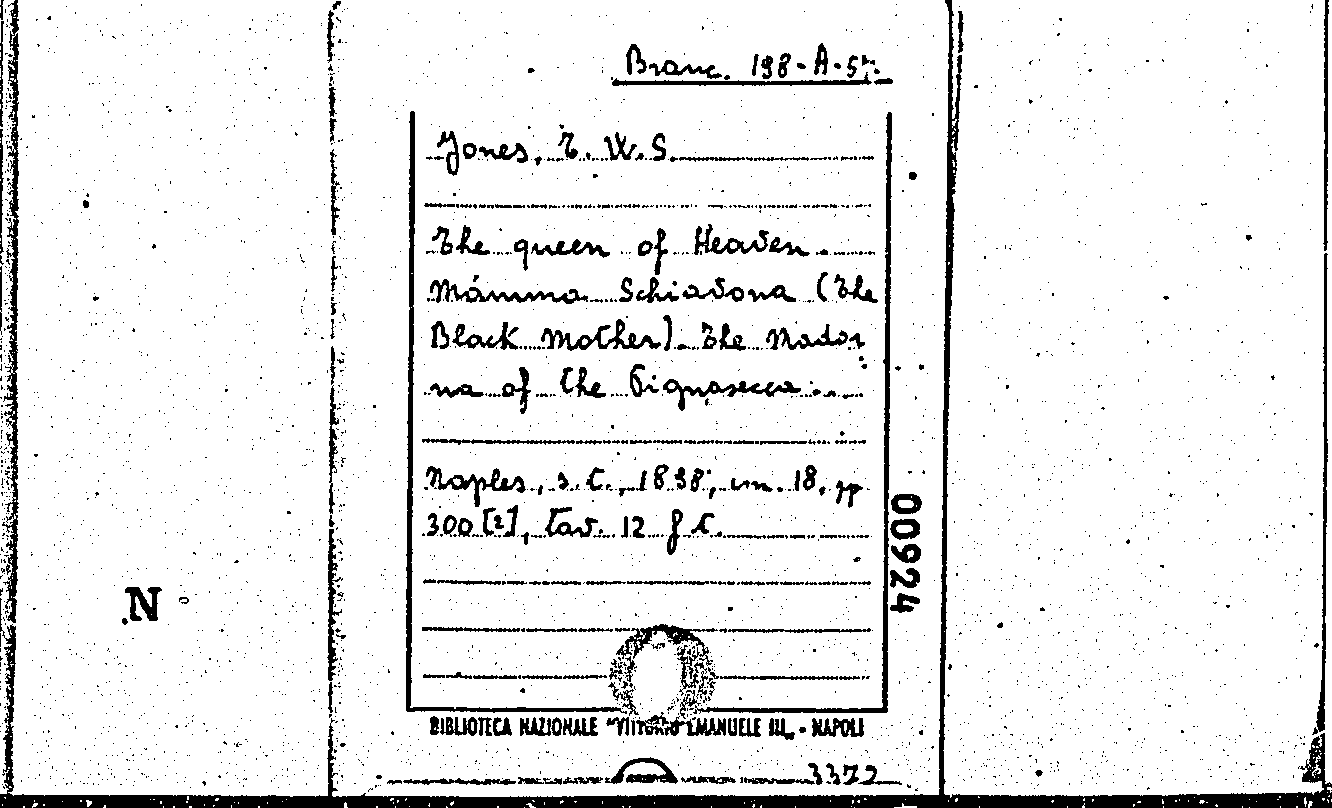 Branc. 198-A-57.
Jones, T. W. S.
The queen of Heaven.
Màmma Schiavona (The
Black Mother). The Mador
na of the Pignasecca...
Naples, s. t., 1898; cm. 18, pp
300 [2], tav. 12 f. t.
00924
N
BIBLIOTECA NAZIONALE "VITTORIO EMANUELE III„ - NAPOLI
3372